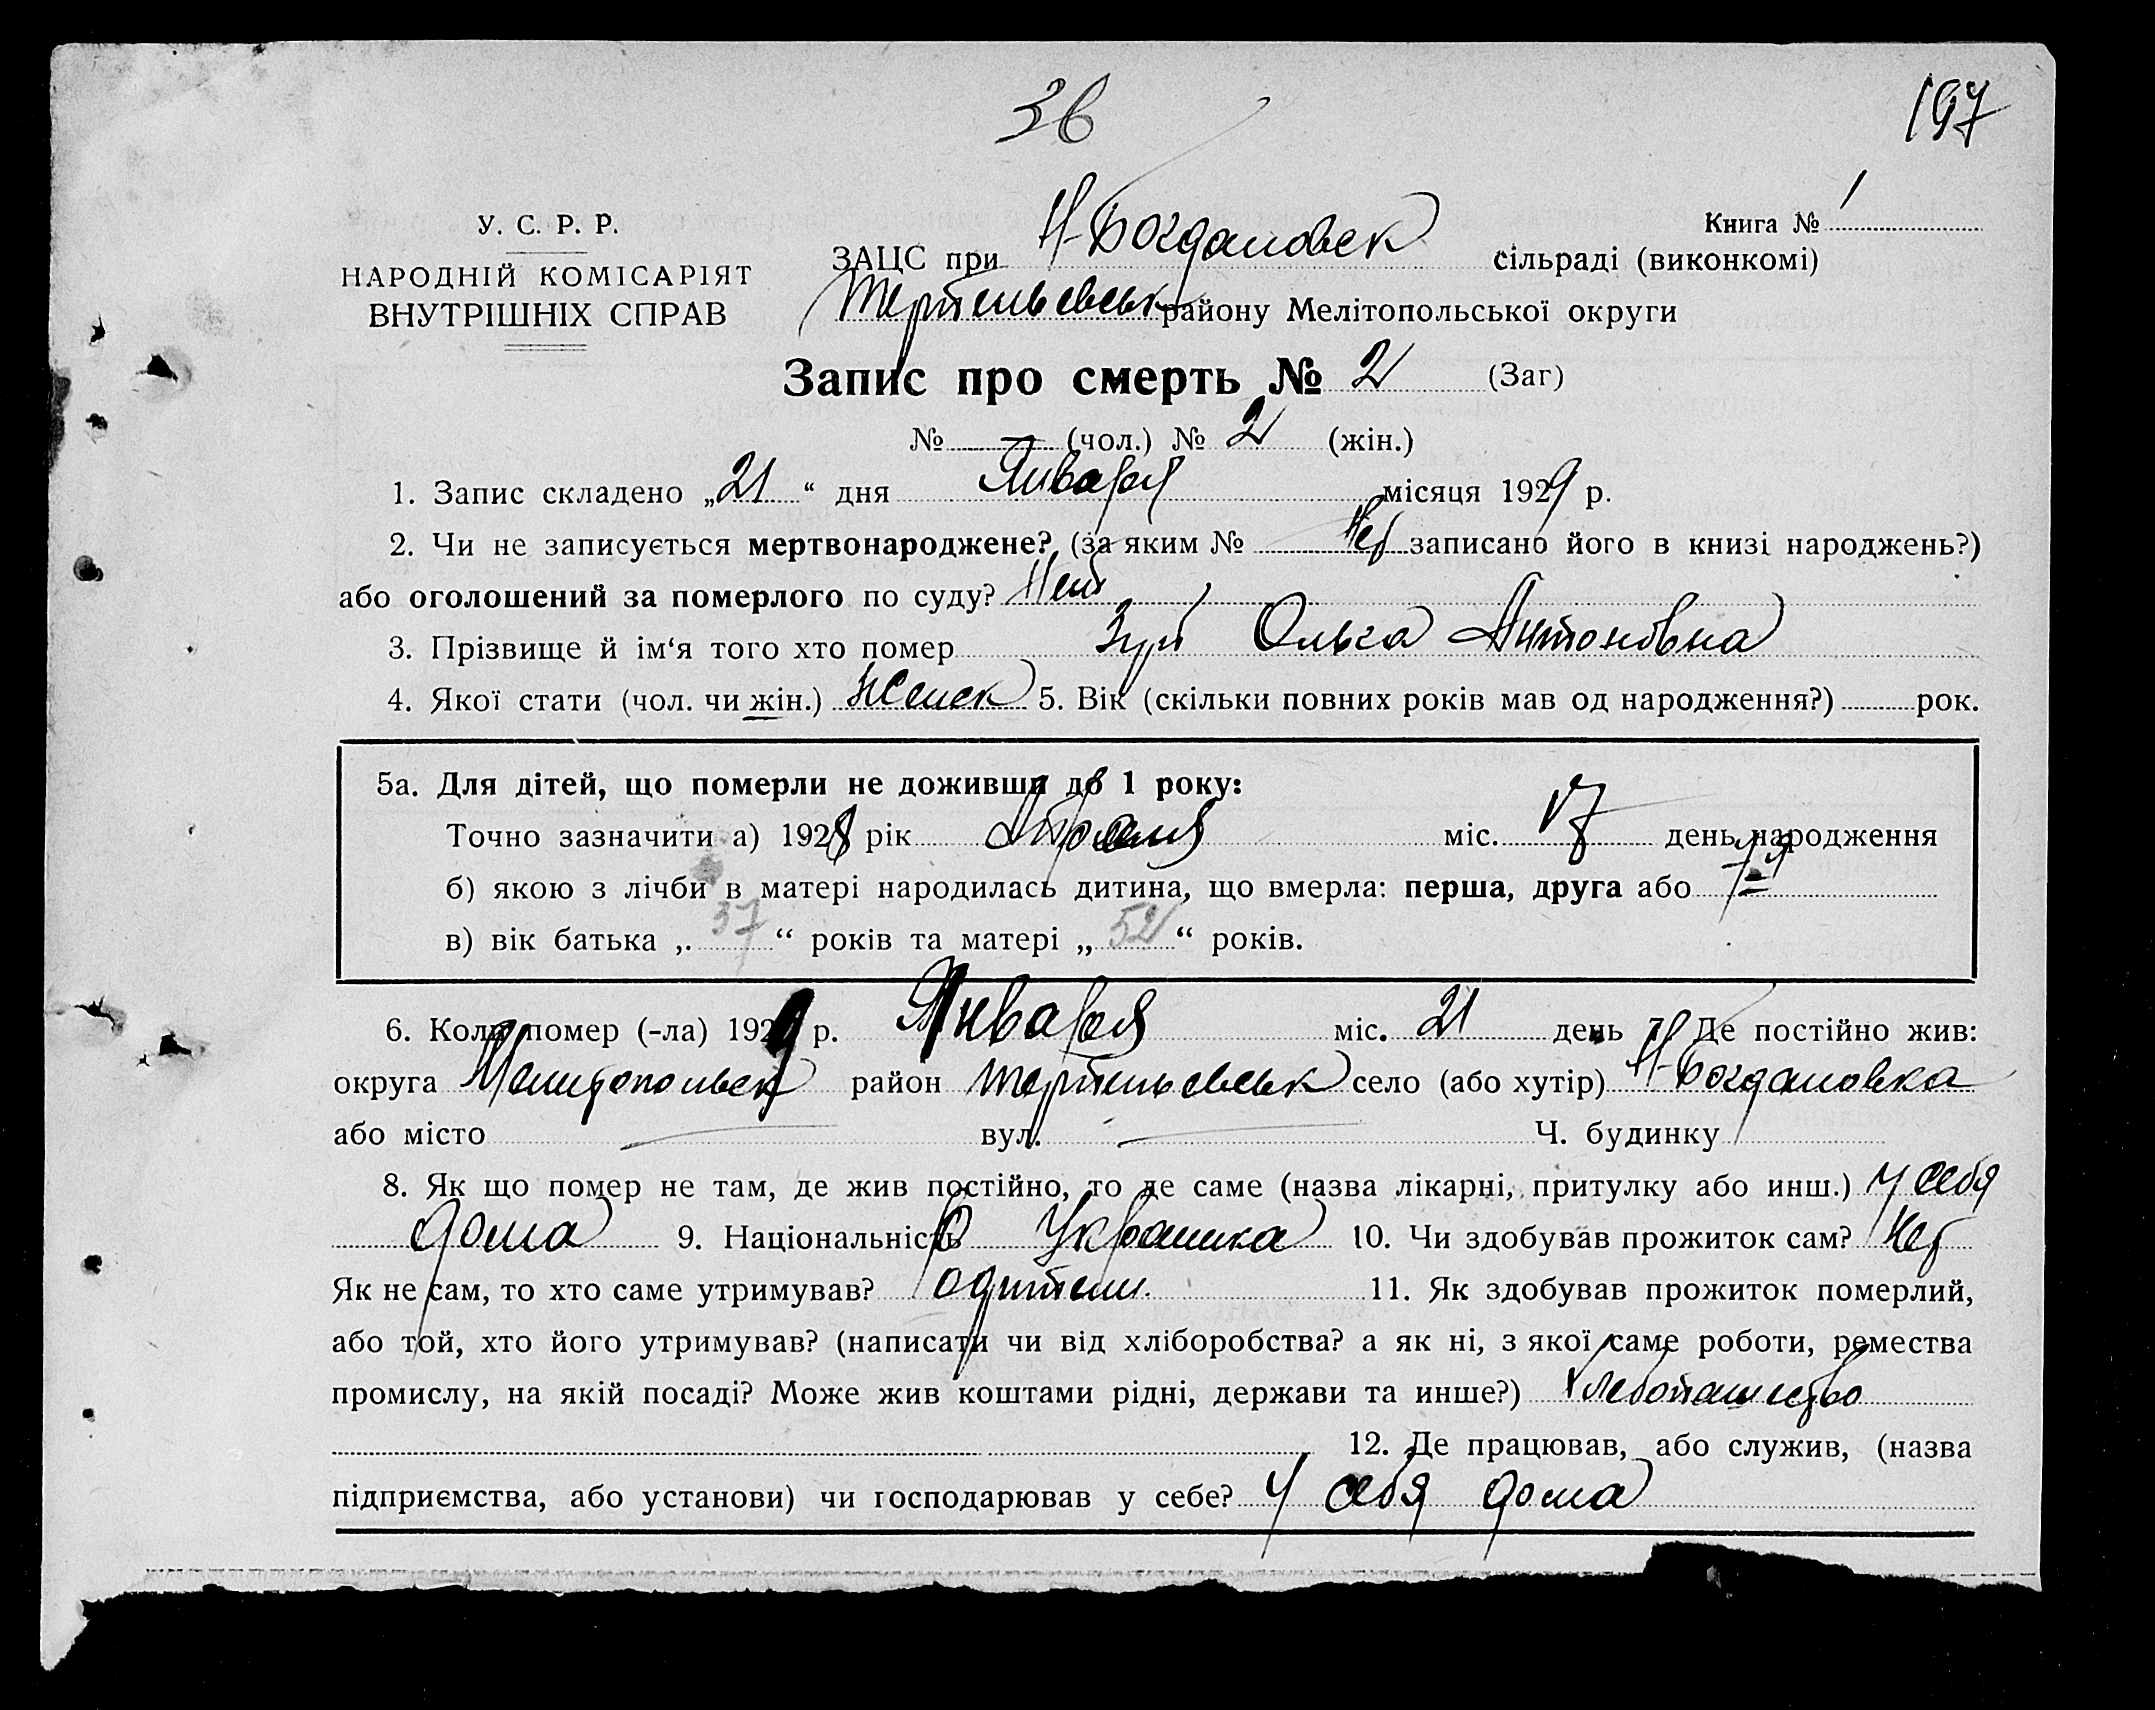 36
197
У. С. Р. Р.
НАРОДНІЙ КОМІСАРІЯТ
ВНУТРІШНІХ СПРАВ
Книга № 1
ЗАЦС при Н-Богдановск сільраді (виконкомі)
району Мелітопольської округи
Запис про смерть № 2 (Заг)
№ — (чол.) № 2 (жін.)
1. Запис складено „21“ дня Января місяця 1929 р.
2. Чи не записується мертвонароджене? (за яким № Нет записано його в книзі народжень?)
або оголошений за померлого по суду? Нет
3. Прізвище й ім‘я того хто помер Зуб Ольга Антоновна
4. Якої стати (чол. чи жін.) Женск 5. Вік (скільки повних років мав од народження?) рок.
5а. Для дітей, що померли не доживши до 1 року:
Точно зазначити а) 1928 рік Апреля міс. 17 день народження
б) якою з лічби в матері народилась дитина, що вмерла: перша, друга або 7-я
в) вік батька „ 57 “ років та матері „ 52 “ років.
6. Коли помер (-ла) 1929 р. Января міс. 21 день 7. Де постійно жив:
округа Мелитопольск район село (або хутір) Н-Богдановка
або місто — вул. — Ч. будинку
8. Як що помер не там, де жив постійно, то де саме (назва лікарні, притулку або инш.) У себя
дома 9. Національність Украинка 10. Чи здобував прожиток сам? Нет
Як не сам, то хто саме утримував? Родители. 11. Як здобував прожиток померлий,
або той, хто його утримував? (написати чи від хліборобства? а як ні, з якої саме роботи, ремества
промислу, на якій посаді? Може жив коштами рідні, держави та инше?) Хлебопашество
12. Де працював, або служив, (назва
підприємства, або установи) чи господарював у себе? У себя дома